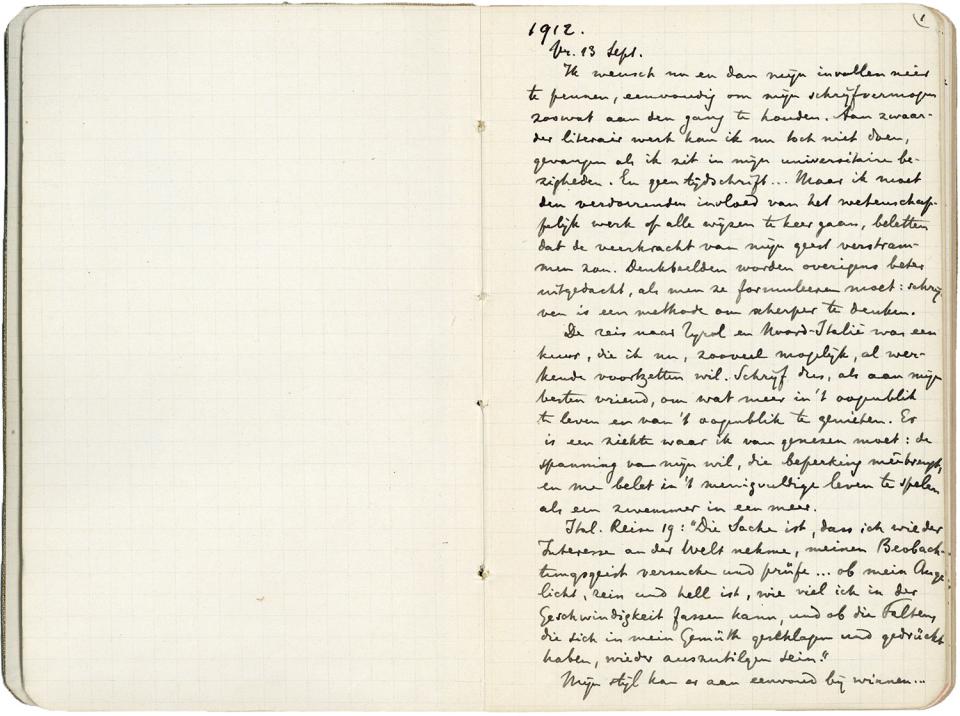 1
1912.
Vr. 13 Sept.
Ik wensch nu en dan mijn invallen neer
te pennen, eenvoudig om mijn schrijfvermogen
zoowat aan den gang te houden. Aan zwaar-
der literair werk kan ik nu toch niet doen,
gevangen als ik zit in mijn universitaire be-
zigheden. En geen tijdschrift... Maar ik moet
den verdorrenden invloed van het wetenschap-
pelijk werk op alle wijzen te keer gaan, beletten
dat de veerkracht van mijn geest verstram-
men zou. Denkbeelden worden overigens beter
uitgedacht, als men ze formuleeren moet: schrij-
ven is een methode om scherper te denken.
De reis naar Tyrol en Noord-Italië was een
kuur, die ik nu, zooveel mogelijk, al wer-
kende voortzetten wil. Schrijf dus, als aan mijn
besten vriend, om wat meer in 't oogenblik
te leven en van 't oogenblik te genieten. Er
is een ziekte waar ik van genezen moet: de
spanning van mijn wil, die beperking meêbrengt,
en me belet in 't menigvuldige leven te spelen
als een zwemmer in een meer.
Ital. Reise 19: "Die Sache ist, dass ich wieder
Interesse an der Welt nehme, meinen Beobach-
tungsgeist versuche und prüfe... ob mein Auge
licht, rein und hell ist, wie viel ich in der
Geschwindigkeit fassen kann, und ob die Falten,
die sich in mein Gemüth geschlagen und gedrückt
haben, wieder auszutilgen sein."
Mijn stijl kan er aan eenvoud bij winnen...